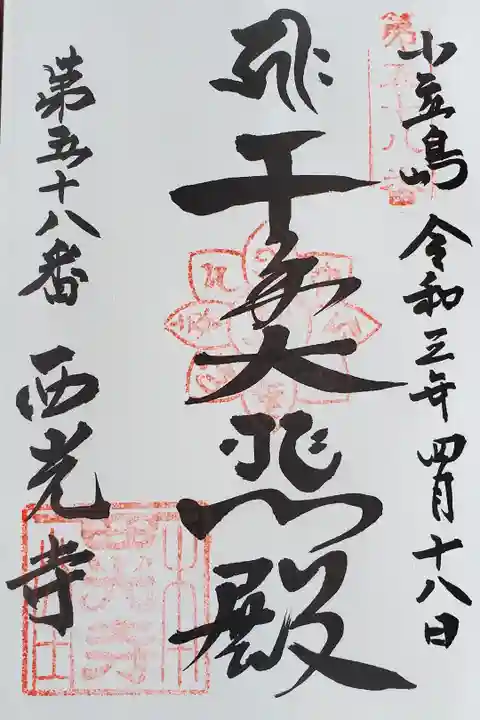 小立島 令和三年四月十八日
千手大悲殿
第五十八番 西光寺
第五十八番